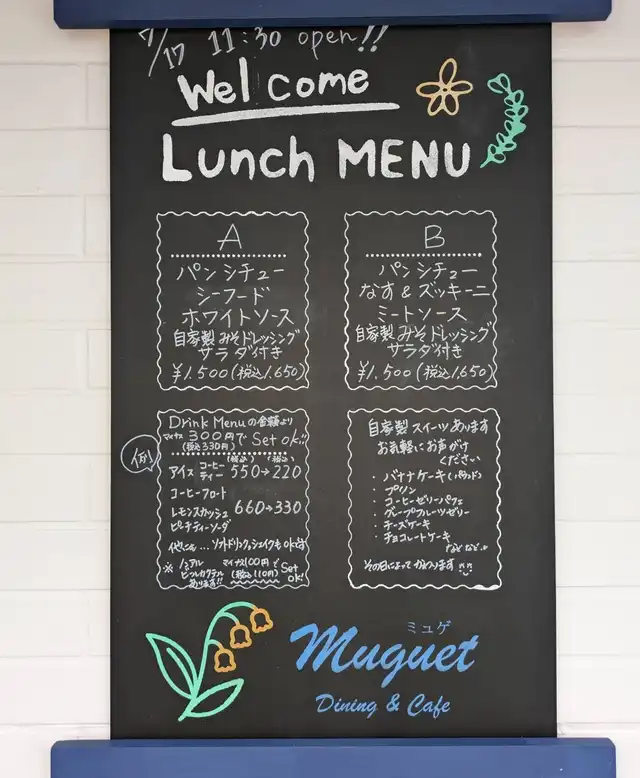 7/17 11:30 open!!
Welcome
Lunch MENU
A
パンシチュー
シーフード
ホワイトソース
自家製みそドレッシング
サラダ付き
¥1.500(税込1.650)
B
パンシチュー
なす&ズッキーニ
ミートソース
自家製みそドレッシング
サラダ付き
¥1.500(税込1.650)
Drink Menuの金額より
マイナス300円でSet ok!!
(税込330円)
例)
(税込) (税込)
アイスコーヒー
ティー 550→220
コーヒーフロート
レモンスカッシュ 660→330
ピーチティーソーダ
他にも...ソフトドリンク,シェイクもokです
※ノンアル
ビール,カクテル
あります!!
マイナス100円で
(税込110円)
Set ok!
自家製スイーツあります
お気軽にお声がけ
ください
・バナナケーキ(パウンド)
・プリン
・コーヒーゼリーパフェ
・グレープフルーツゼリー
・チーズケーキ
・チョコレートケーキ
などなど..
その日によってかわります
ミュゲ
Muguet
Dining & Cafe